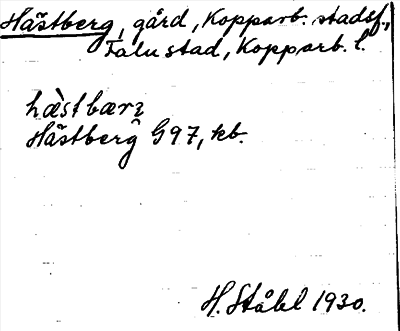 Hästberg, gård, Kopparb. stadsf.,
Falu stad, Kopparb. l.
hæ̀stbærɜ
Hästberg G97, kb.
H. Ståhl 1930.